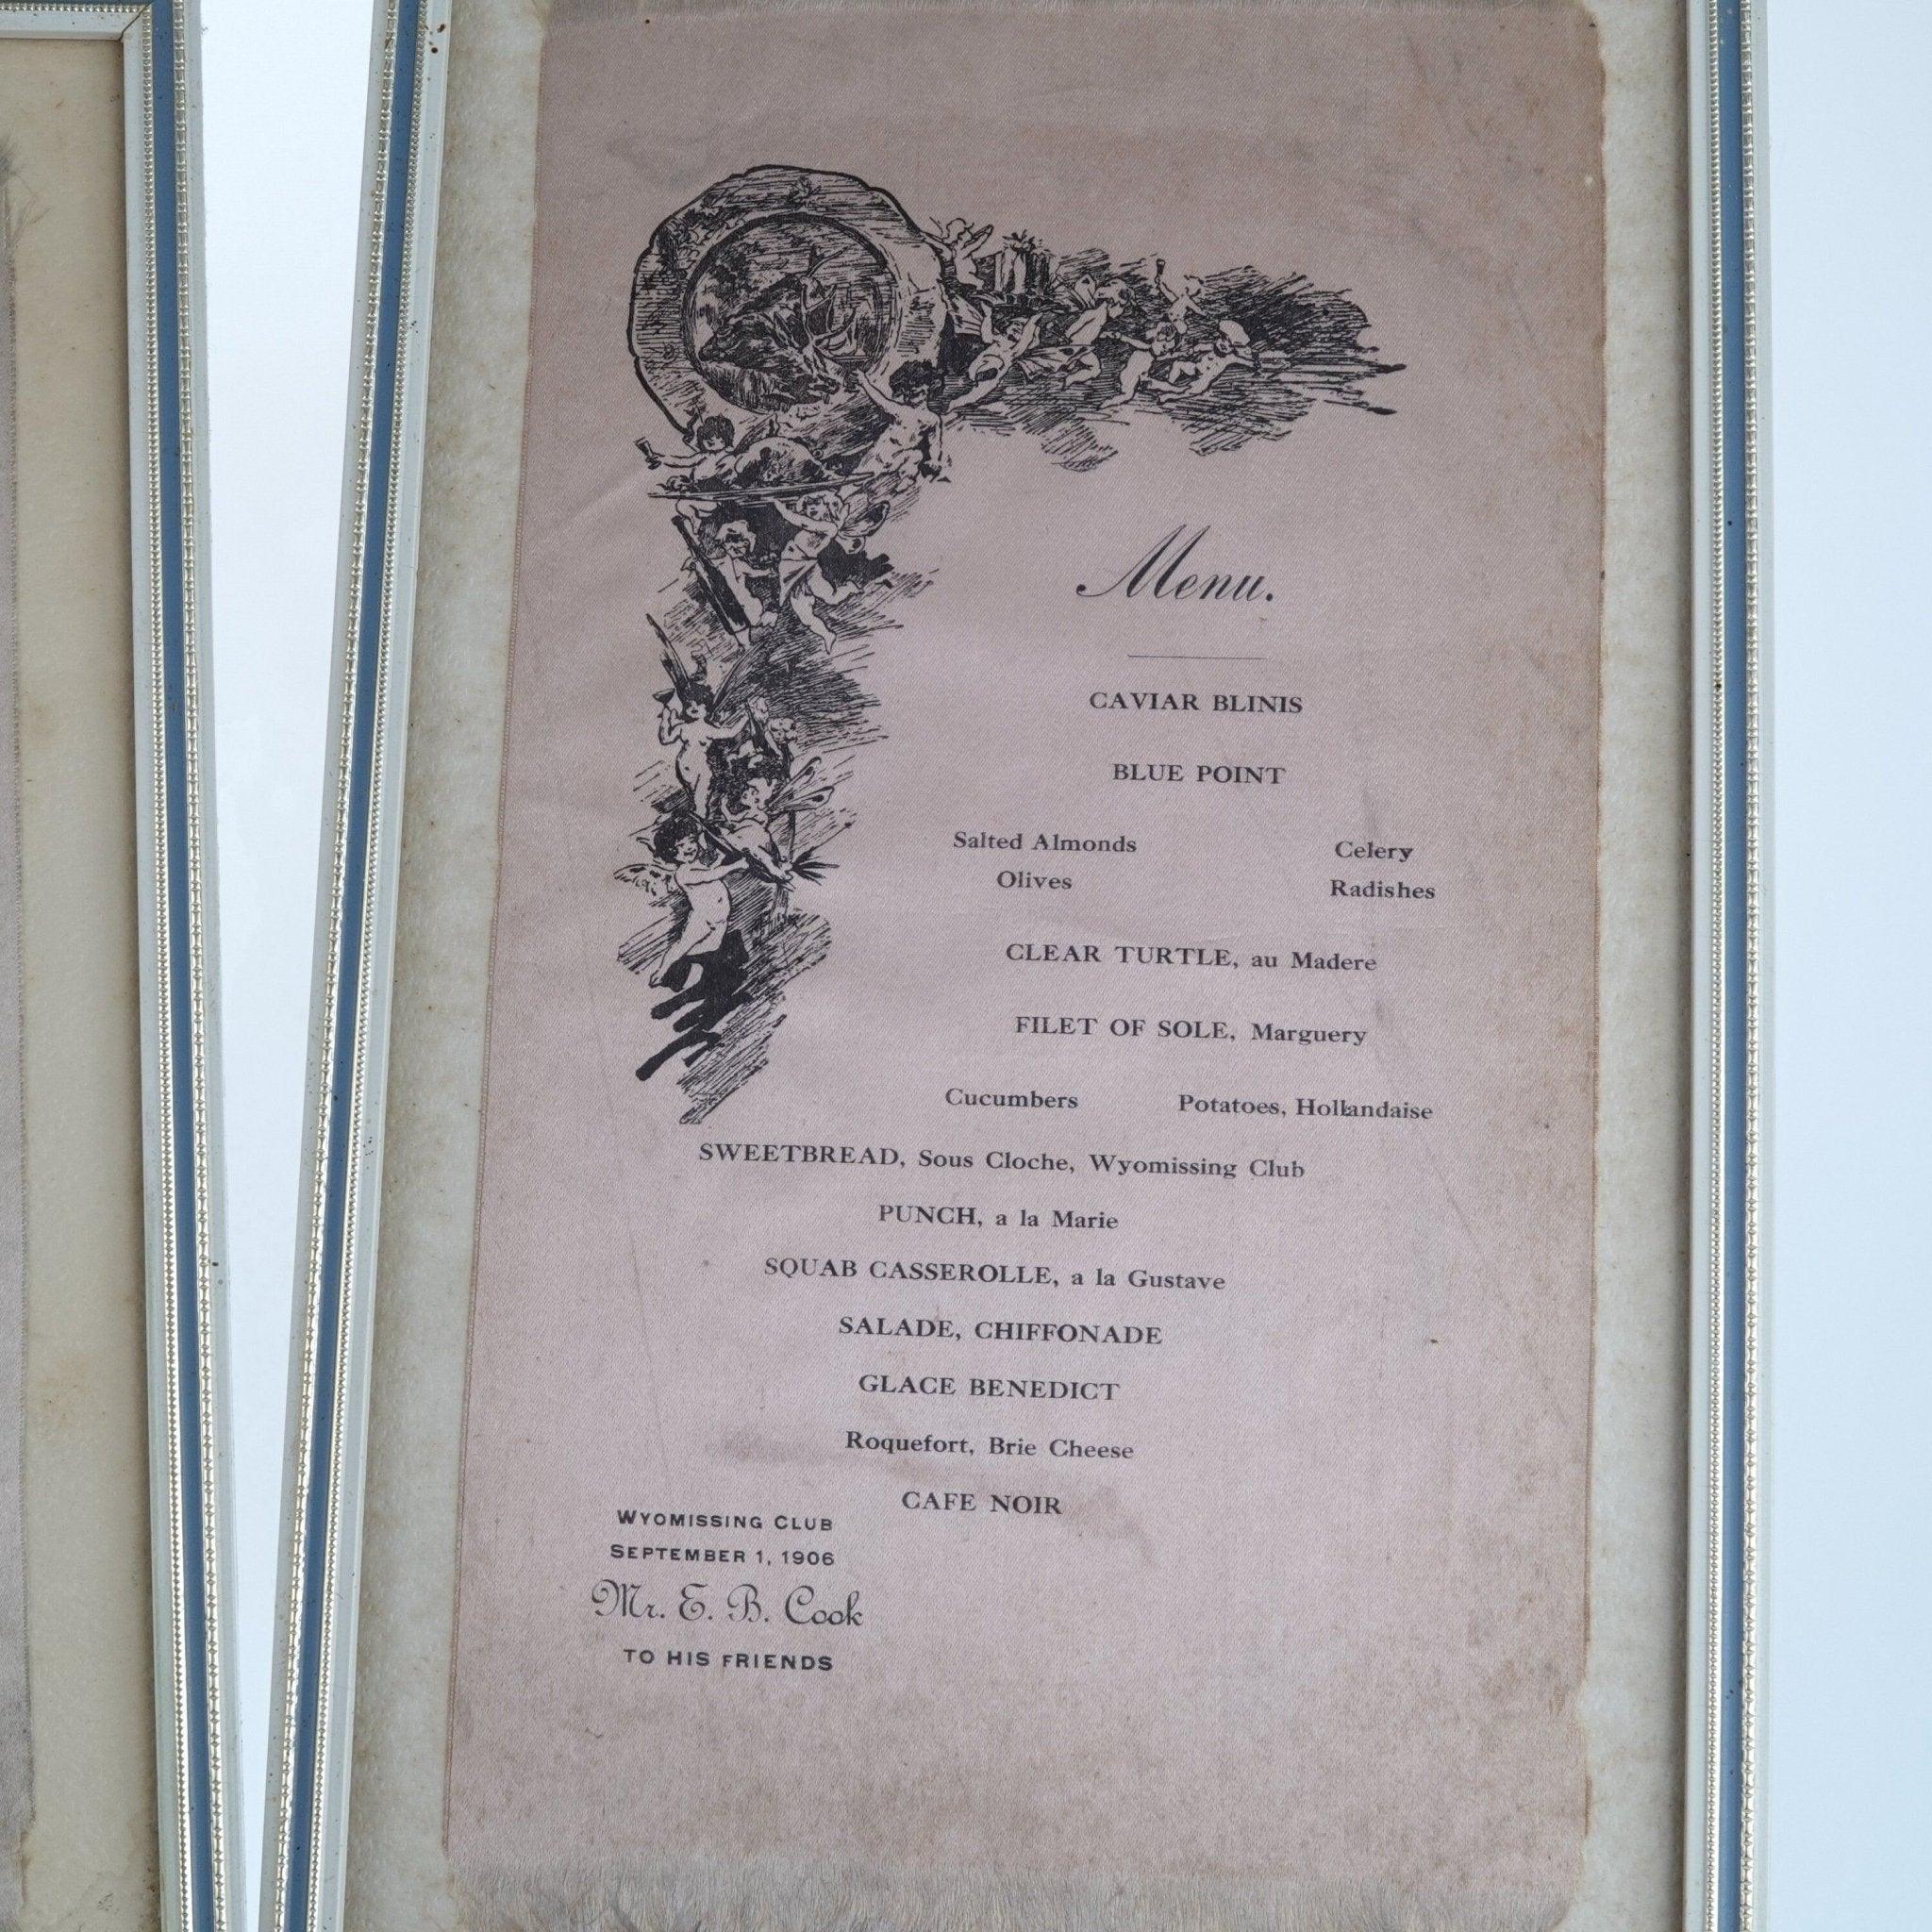 Menu.
CAVIAR BLINIS
BLUE POINT
Salted Almonds Celery
Olives Radishes
CLEAR TURTLE, au Madere
FILET OF SOLE, Marguery
Cucumbers Potatoes, Hollandaise
SWEETBREAD, Sous Cloche, Wyomissing Club
PUNCH, a la Marie
SQUAB CASSEROLLE, a la Gustave
SALADE, CHIFFONADE
GLACE BENEDICT
Roquefort, Brie Cheese
CAFE NOIR
WYOMISSING CLUB
SEPTEMBER 1, 1906
Mr. E. B. Cook
TO HIS FRIENDS